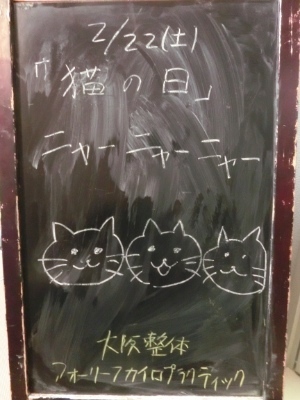 2/22(土)
「猫の日」
ニャーニャーニャー
大阪整体
フォーリーフカイロプラクティック